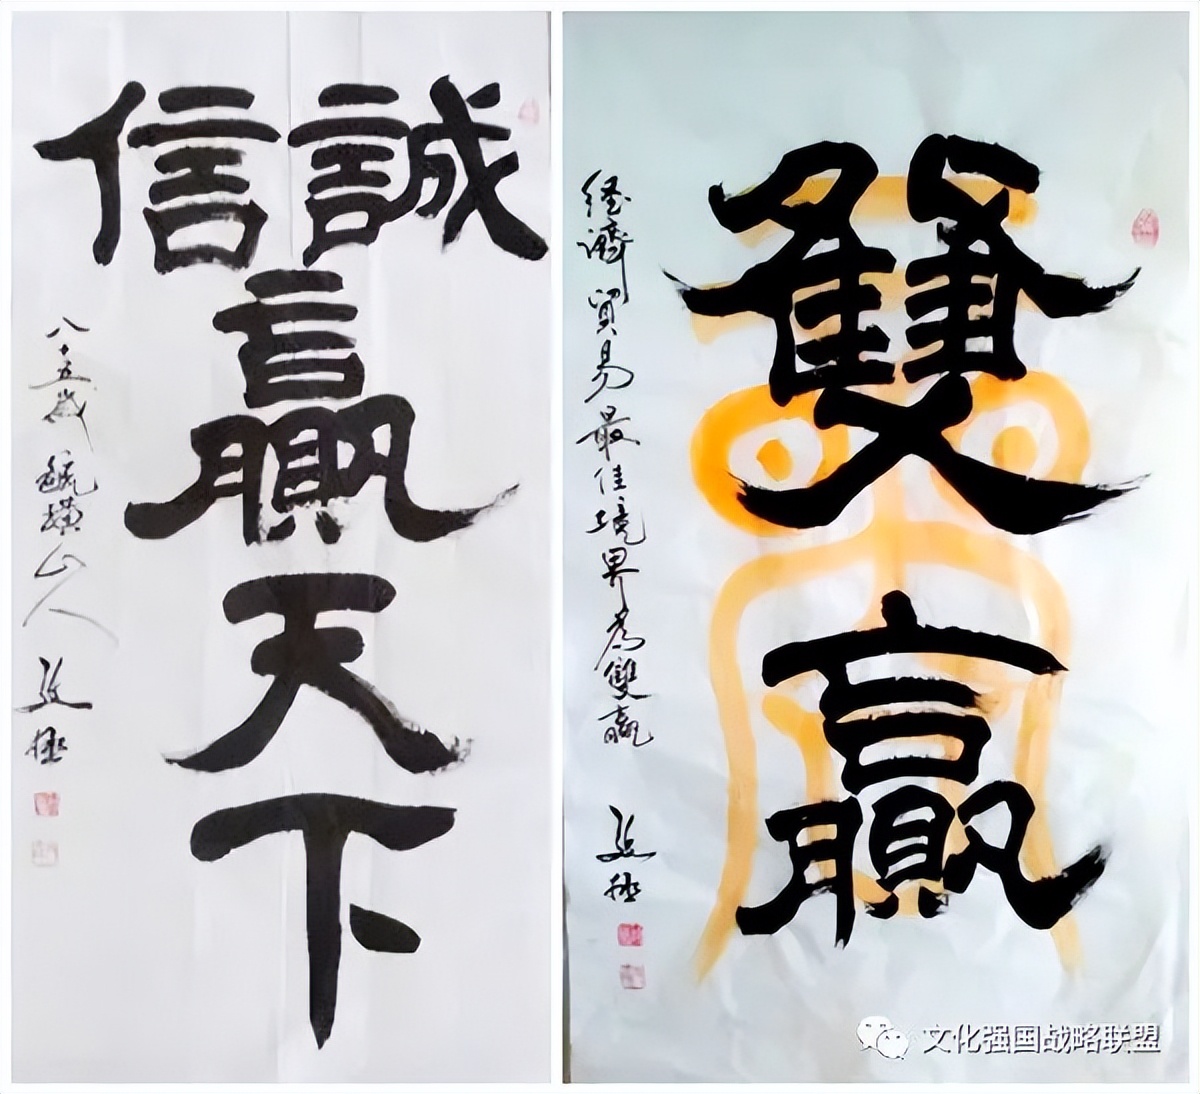 誠信
贏
天
下
八十五歲 横山人
雙
贏
経濟貿易最佳境界為雙贏
文化强国战略联盟